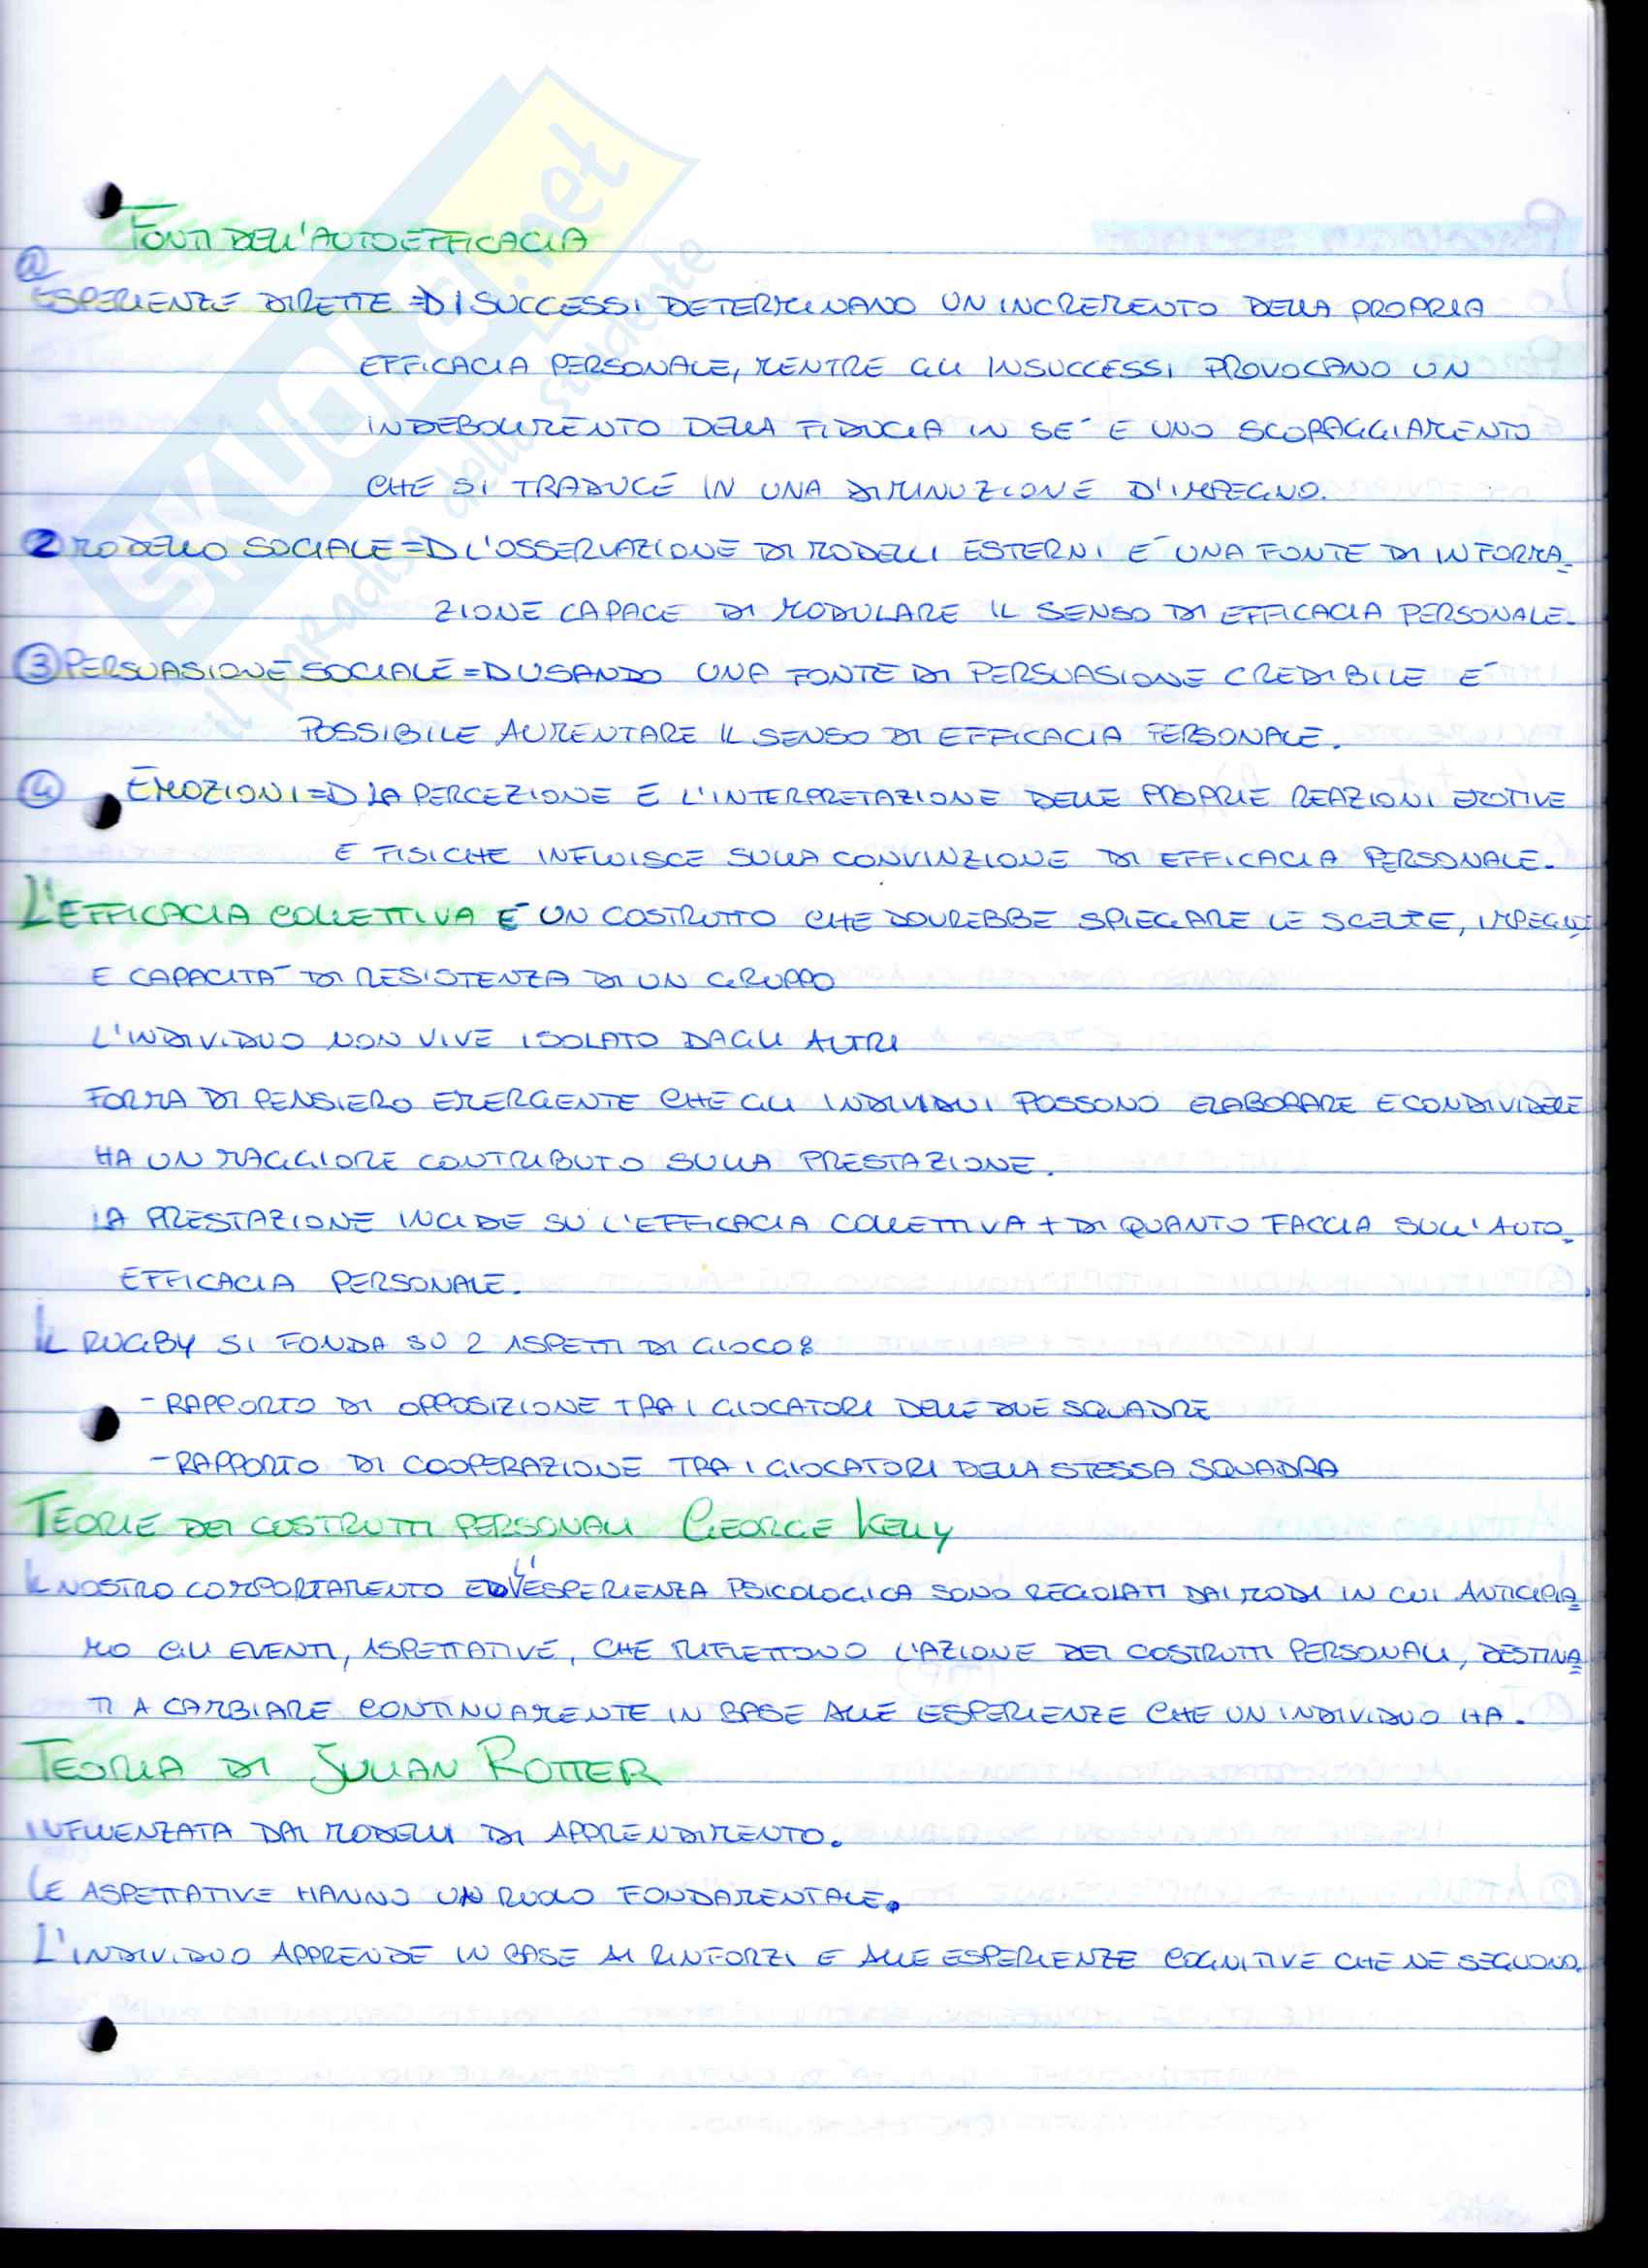 FONTI DELL'AUTOEFFICACIA
① ESPERIENZE DIRETTE => I SUCCESSI DETERMINANO UN INCREMENTO DELLA PROPRIA
EFFICACIA PERSONALE, MENTRE GLI INSUCCESSI PROVOCANO UN
INDEBOLIMENTO DELLA FIDUCIA IN SE' E UNO SCORAGGIAMENTO
CHE SI TRADUCE IN UNA DIMINUZIONE D'IMPEGNO.
② MODELLO SOCIALE => L'OSSERVAZIONE DI MODELLI ESTERNI E' UNA FONTE DI INFORMA-
ZIONE CAPACE DI MODULARE IL SENSO DI EFFICACIA PERSONALE.
③ PERSUASIONE SOCIALE => USANDO UNA FONTE DI PERSUASIONE CREDIBILE E'
POSSIBILE AUMENTARE IL SENSO DI EFFICACIA PERSONALE.
④ EMOZIONI => LA PERCEZIONE E L'INTERPRETAZIONE DELLE PROPRIE REAZIONI EMOTIVE
E FISICHE INFLUISCE SULLA CONVINZIONE DI EFFICACIA PERSONALE.
L'EFFICACIA COLLETTIVA E' UN COSTRUTTO CHE DOVREBBE SPIEGARE LE SCELTE, IMPEGNO
E CAPACITA' DI RESISTENZA DI UN GRUPPO
L'INDIVIDUO NON VIVE ISOLATO DAGLI ALTRI
FORMA DI PENSIERO EMERGENTE CHE GLI INDIVIDUI POSSONO ELABORARE E CONDIVIDERE
HA UN MAGGIORE CONTRIBUTO SULLA PRESTAZIONE.
LA PRESTAZIONE INCIDE SU L'EFFICACIA COLLETTIVA + DI QUANTO FACCIA SULL'AUTO-
EFFICACIA PERSONALE.
IL RUGBY SI FONDA SU 2 ASPETTI DI GIOCO:
- RAPPORTO DI OPPOSIZIONE TRA I GIOCATORI DELLE DUE SQUADRE
- RAPPORTO DI COOPERAZIONE TRA I GIOCATORI DELLA STESSA SQUADRA
TEORIE DEI COSTRUTTI PERSONALI GEORGE KELLY
IL NOSTRO COMPORTAMENTO E L'ESPERIENZA PSICOLOGICA SONO REGOLATI DAI MODI IN CUI ANTICIPIA-
MO GLI EVENTI, ASPETTATIVE, CHE RIFLETTONO L'AZIONE DEI COSTRUTTI PERSONALI, DESTINA-
TI A CAMBIARE CONTINUAMENTE IN BASE ALLE ESPERIENZE CHE UN INDIVIDUO HA.
TEORIA DI JULIAN ROTTER
INFLUENZATA DAI MODELLI DI APPRENDIMENTO.
LE ASPETTATIVE HANNO UN RUOLO FONDAMENTALE.
L'INDIVIDUO APPRENDE IN BASE AI RINFORZI E ALLE ESPERIENZE COGNITIVE CHE NE SEGUONO.
SKUOLA.net
il paradiso dello studente